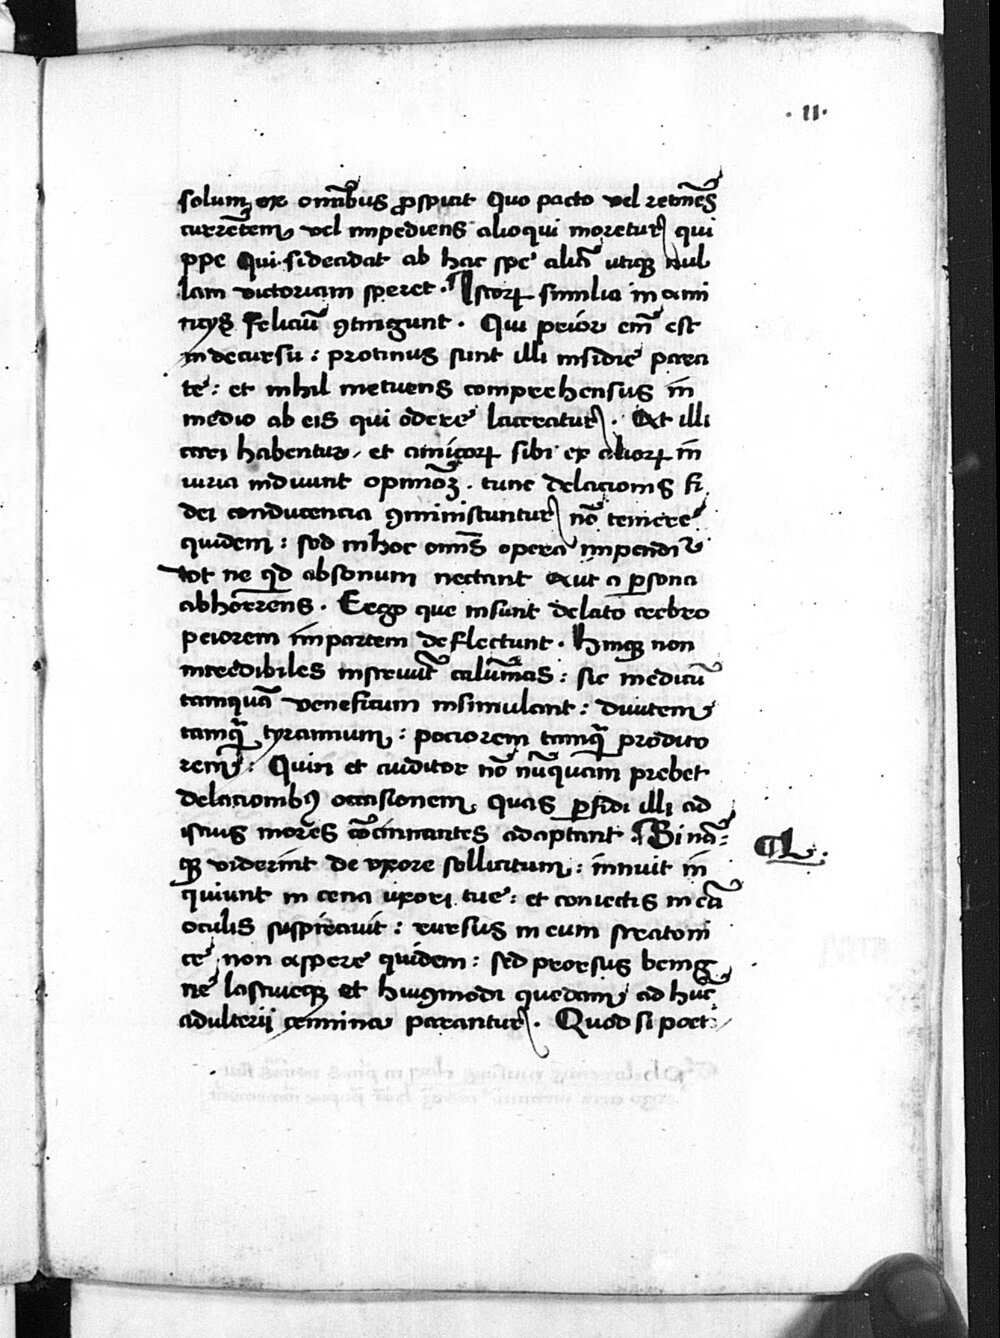 · 11 ·
solum ex omnibus ꝓspiciat Quo pacto vel retinēs
currētem vel impediens alioqui moretur qui
ppe Qui si decidat ab hac spe aliā utiqꝫ nul
lam victoriam speret · Istorꝝ similia in ami
ticijs feliciū ꝯtingunt · Qui prior em̄ est
in decursu : protinus sunt illi insidie para
te : et nihil metuens comprehensus in
medio ab eis qui odere laceratur · At illi
cari habentur et amicorꝝ sibi ex aliorꝝ in
iuria induunt opinioꝫ · tunc delacionis fi
dei conducencia ꝯminiscuntur nō temere
quidem : sed in hoc omīs opera impendi
tot ne qd absonum nectant aut a ꝑsona
abhorrens · Ergo que insunt delato crebro
peiorem in partem deflectunt · hincqꝫ non
incredibiles instruūt calūnias : sic medicū
tamquā veneficum insimulant : diuitem
tamqꝫ tyrannum : pociorem tamqꝫ prodito
rem : Quin et auditor nō nūquam prebet
delacionibꝰ occasionem quas ꝑfidi illi ad
istius mores cōcinnantes adaptant · Si nā=
qꝫ viderint de vxore sollicitum : innuit in
quiunt in cena vxori tue : et coniectis in eā
oculis suspirauit : rursus in eum stratoni
ce non aspere quidem : sed prorsus benig
ne lasciueqꝫ et huiꝯmodi quedam ad hūc
adulterij crimina parantur · Quod si poet